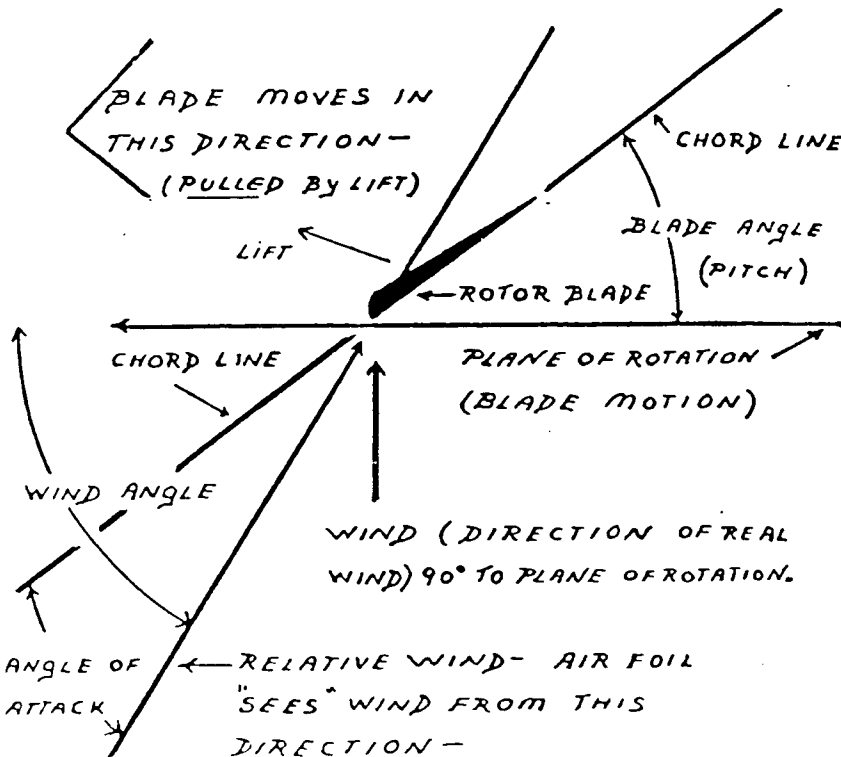 BLADE MOVES IN
THIS DIRECTION—
(PULLED By LIFT)
CHORD LINE
BLADE ANGLE
(PITCH)
LIFT
ROTOR BLADE
CHORD LINE
PLANE OF ROTATION
(BLADE MOTION)
WIND ANGLE
WIND (DIRECTION OF REAL
WIND) 90° TO PLANE OF ROTATION.
ANGLE OF
ATTACK
RELATIVE WIND- AIR FOIL
"SEES" WIND FROM THIS
DIRECTION—